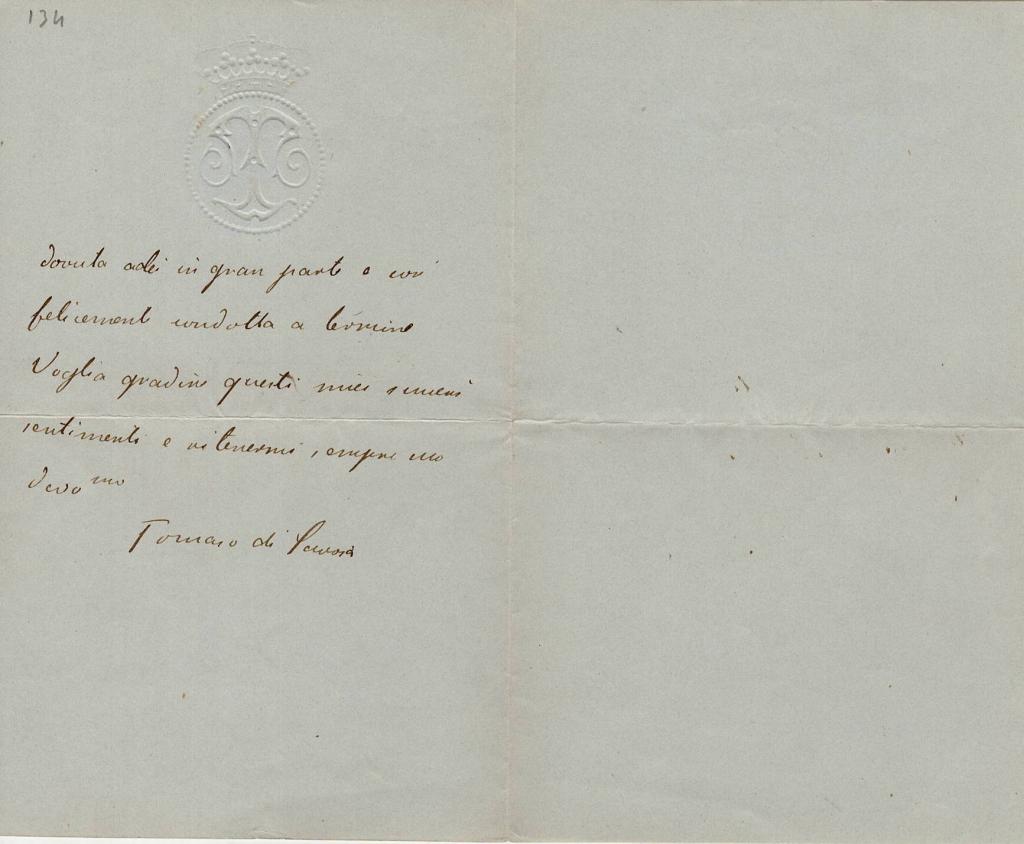 134
dovuta a lei in gran parte e così
felicemente condotta a termine
Voglia gradire questi miei sinceri
sentimenti e ritenermi sempre suo
devo mo
Tomaso di Savoia